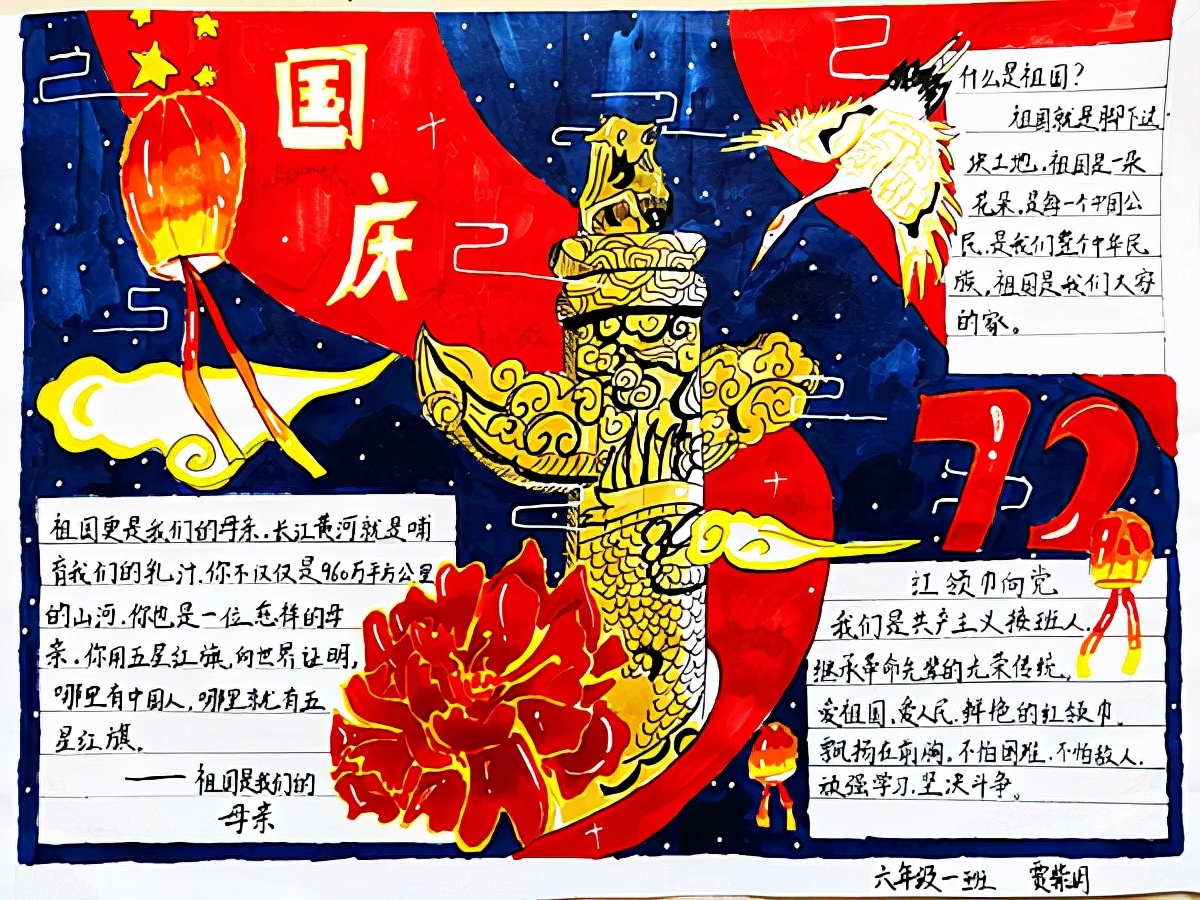 国
庆
什么是祖国?
祖国就是脚下这
块土地,祖国是一朵
花朵,是每一个中国公
民,是我们整个中华民
族,祖国是我们大家
的家。
72
祖国更是我们的母亲.长江黄河就是哺
育我们的乳汁.你不仅仅是960万平方公里
的山河.你也是一位怎样的母
亲.你用五星红旗,向世界证明,
哪里有中国人,哪里就有五
星红旗。
——祖国是我们的
母亲
红领巾向党
我们是共产主义接班人.
继承革命先辈的光荣传统,
爱祖国,爱人民.鲜艳的红领巾.
飘扬在前胸。不怕困难.不怕敌人.
顽强学习.坚决斗争。
六年级一班 贾紫